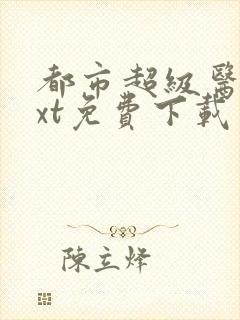 都市超級醫
xt免費下載
陳立烽